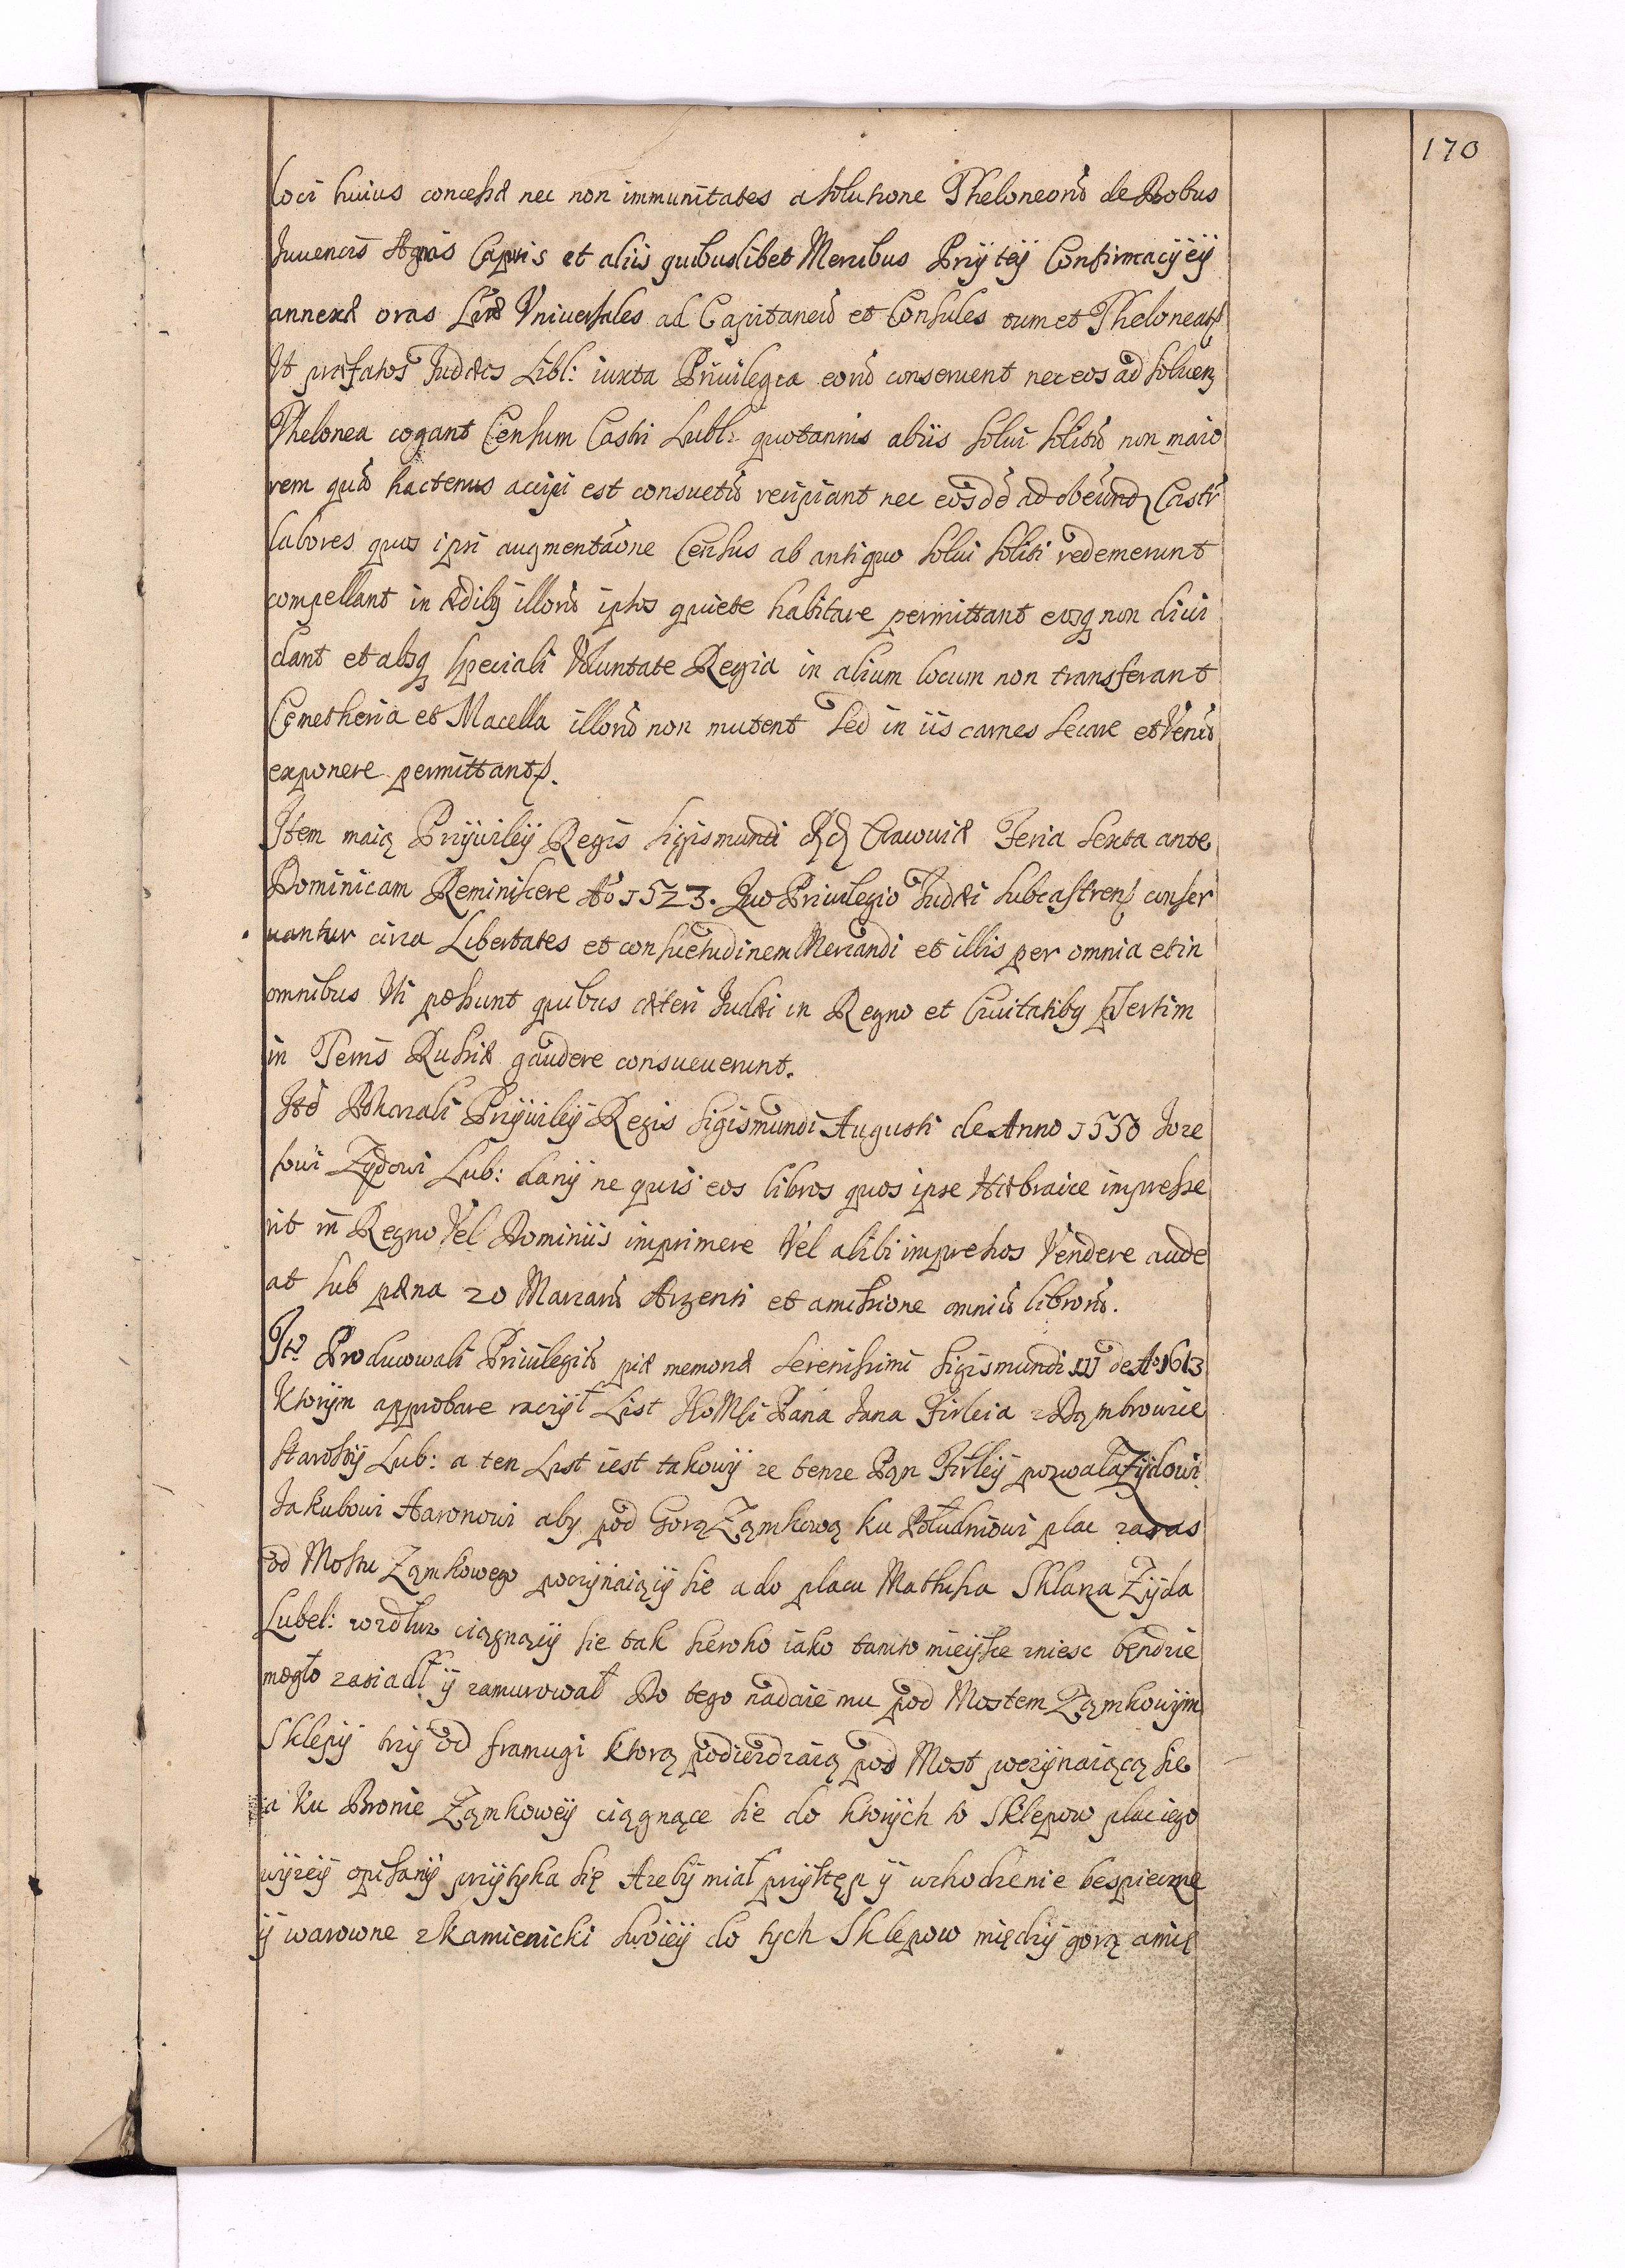 170
loci huius concessæ nec non immunitates a solutione Theloneorũ de Bobus
Iuuencis Agnis Capris et aliis quibuslibet Mercibus Prÿ teÿ Confirmacÿeÿ
annexæ oras Lræ Vniuersales ad Capitaneũ et Consules tum et Theloneat
Vt præfatos Iudæos Lubl: iuxta Priuilegia eorũ conseruent nec eos ad soluen
Thelonea cogant Censum Castri Lubl: quotannis abiis solui solitũ non maio
rem quã hactenus accipi est consuetũ recipiant nec eosdẽ ad obeund Castr
labores quos ipsi augmentãone Census ab antiquo solui soliti redemerunt
compellant in ædibq illorũ ipsos quiete habitare permittant eosq non diui
dant et absq speciali Voluntate Regia in alium locum non transferant
Cemetheria et Macella illorũ non mutent sed in iis carnes secare et Venũ
exponere permittant.
Item maią Prÿwileÿ Regis Sigismundi Cracouiæ Feria sexta ante
Dominicam Reminiscere Ao 1523. Quo Priuilegio Iudæi subcastren conser
uantur circa Libertates et consuetudinem Mercandi et illis per omnia et in
omnibus Vti possunt quibus cæteri Iudæi in Regno et Ciuitatibq Psertim
in Terris Russiæ gaudere consueuerunt.
Itẽ Pokazali Prÿwileÿ Regis Sigismundi Augusti de Anno 1550 Ioze
fowi Zÿdowi Lub: danÿ ne quis eos libros quos ipse Hæbraice impresse
rit in Regno Vel Dominiis imprimere Vel alibi impressos Vendere aude
at sub pæna 20 Marcarũ Argenti et amissione omniũ librorũ.
Itẽ Producowali Priuilegiũ piæ memoriæ Serenissimi Sigismundi III de Ao 1613
Ktorÿm approbare raczÿł List JkoMsi Pana Jana Firleia z Dąmbrowice
Starostÿ Lub: a ten List iest takowÿ ze tenze Pąn Firleÿ pozwala Zÿdowi
Jakubowi Aaronowi aby pod Gorą Ząmkową ku Południowi plac zaras
od Mostu Ząmkowego poczÿnaiącÿ sie a do placu Mathusa Sklarza Zÿda
Lubel: wzdłuz ciągnącÿ sie tak seroko iako tamto mieÿsce zniesc będzie
mogło zasiadł ÿ zamurował Do tego nadaie mu pod Mostem Ząmkowÿm
Sklepÿ trzÿ od framugi ktorą podiezdzaią pod Most poczÿnaiącą sie
a ku Bronie Ząmkoweÿ ciągnące sie do ktorÿch to Sklepow plac iego
wÿzeÿ opisanÿ prÿtÿka się Azebÿ miał prÿstęp ÿ wchodzenie bespieczne
ÿ warowne z kamienicki swoieÿ do tych Sklepow międzÿ gorą a mię